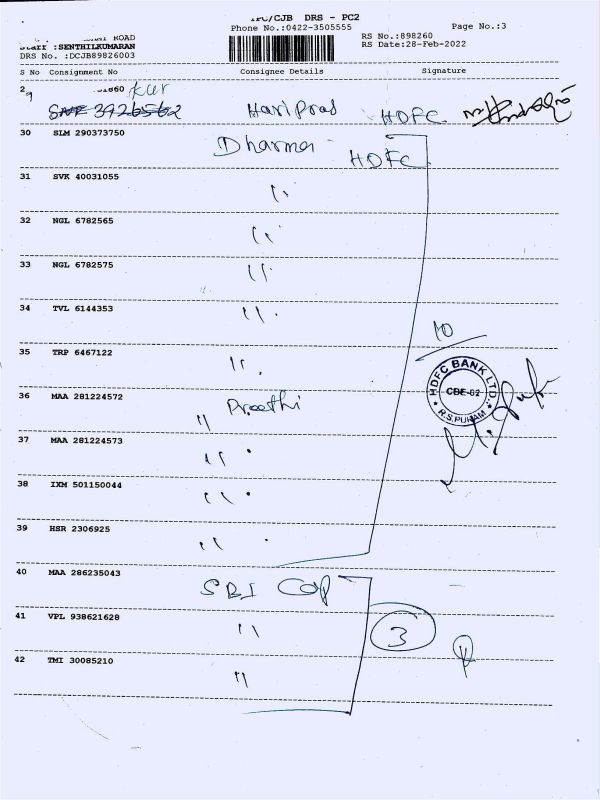 TPC/CJB DRS - PC2
Phone No.:0422-3505555
Page No.:3
ROAD
Staff :SENTHILKUMARAN
DRS No. :DCJB89826003
RS No.:898260
RS Date:28-Feb-2022
S No Consignment No Consignee Details Signature
29 kur
Hari Prod HDFC
30 SLM 290373750 Dharma HDFC
31 SVK 40031055 "
32 NGL 6782565 "
33 NGL 6782575 "
34 TVL 6144353 "
10
35 TRP 6467122 "
HDFC BANK LTD.
CBE-02
R.S.PURAM
36 MAA 281224572 " Preethi
37 MAA 281224573 "
38 IXM 501150044 "
39 HSR 2306925 "
40 MAA 286235043 SBI Cap
41 VPL 938621628 "
3
42 TMI 30085210 "